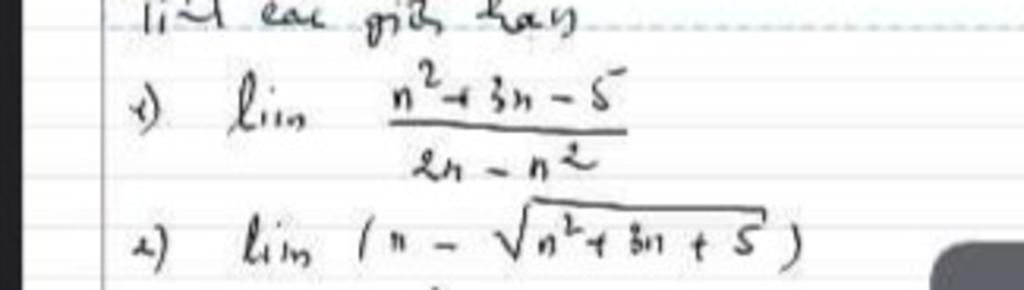 Tìm các giới hạn
1) lim (n² + 3n - 5) / (2n - n²)
2) lim (n - √(n² + 3n + 5))